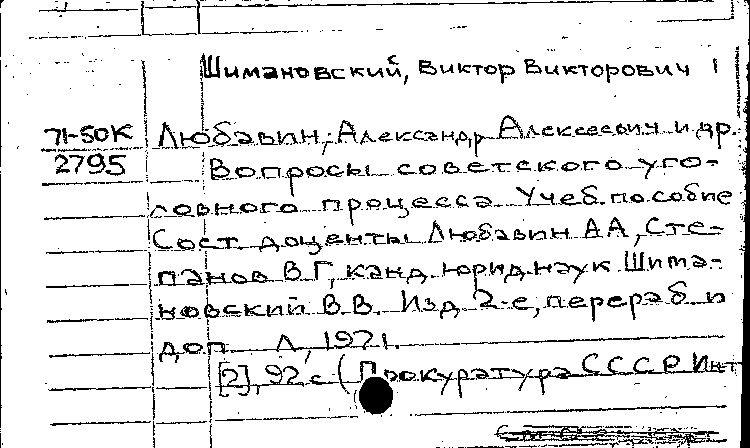 Шимановский, Виктор Викторович 1
71-50К Любавин, Александр Алексеевич и др.
2795 Вопросы советского уго-
ловного процесса Учеб. пособие
Сост. доценты Любавин А А, Сте-
панов В Г, канд. юрид наук Шима-
новский В В. Изд 2-е, перераб и
доп Л, 1971.
[2], 92 с (Прокуратура СССР Инт